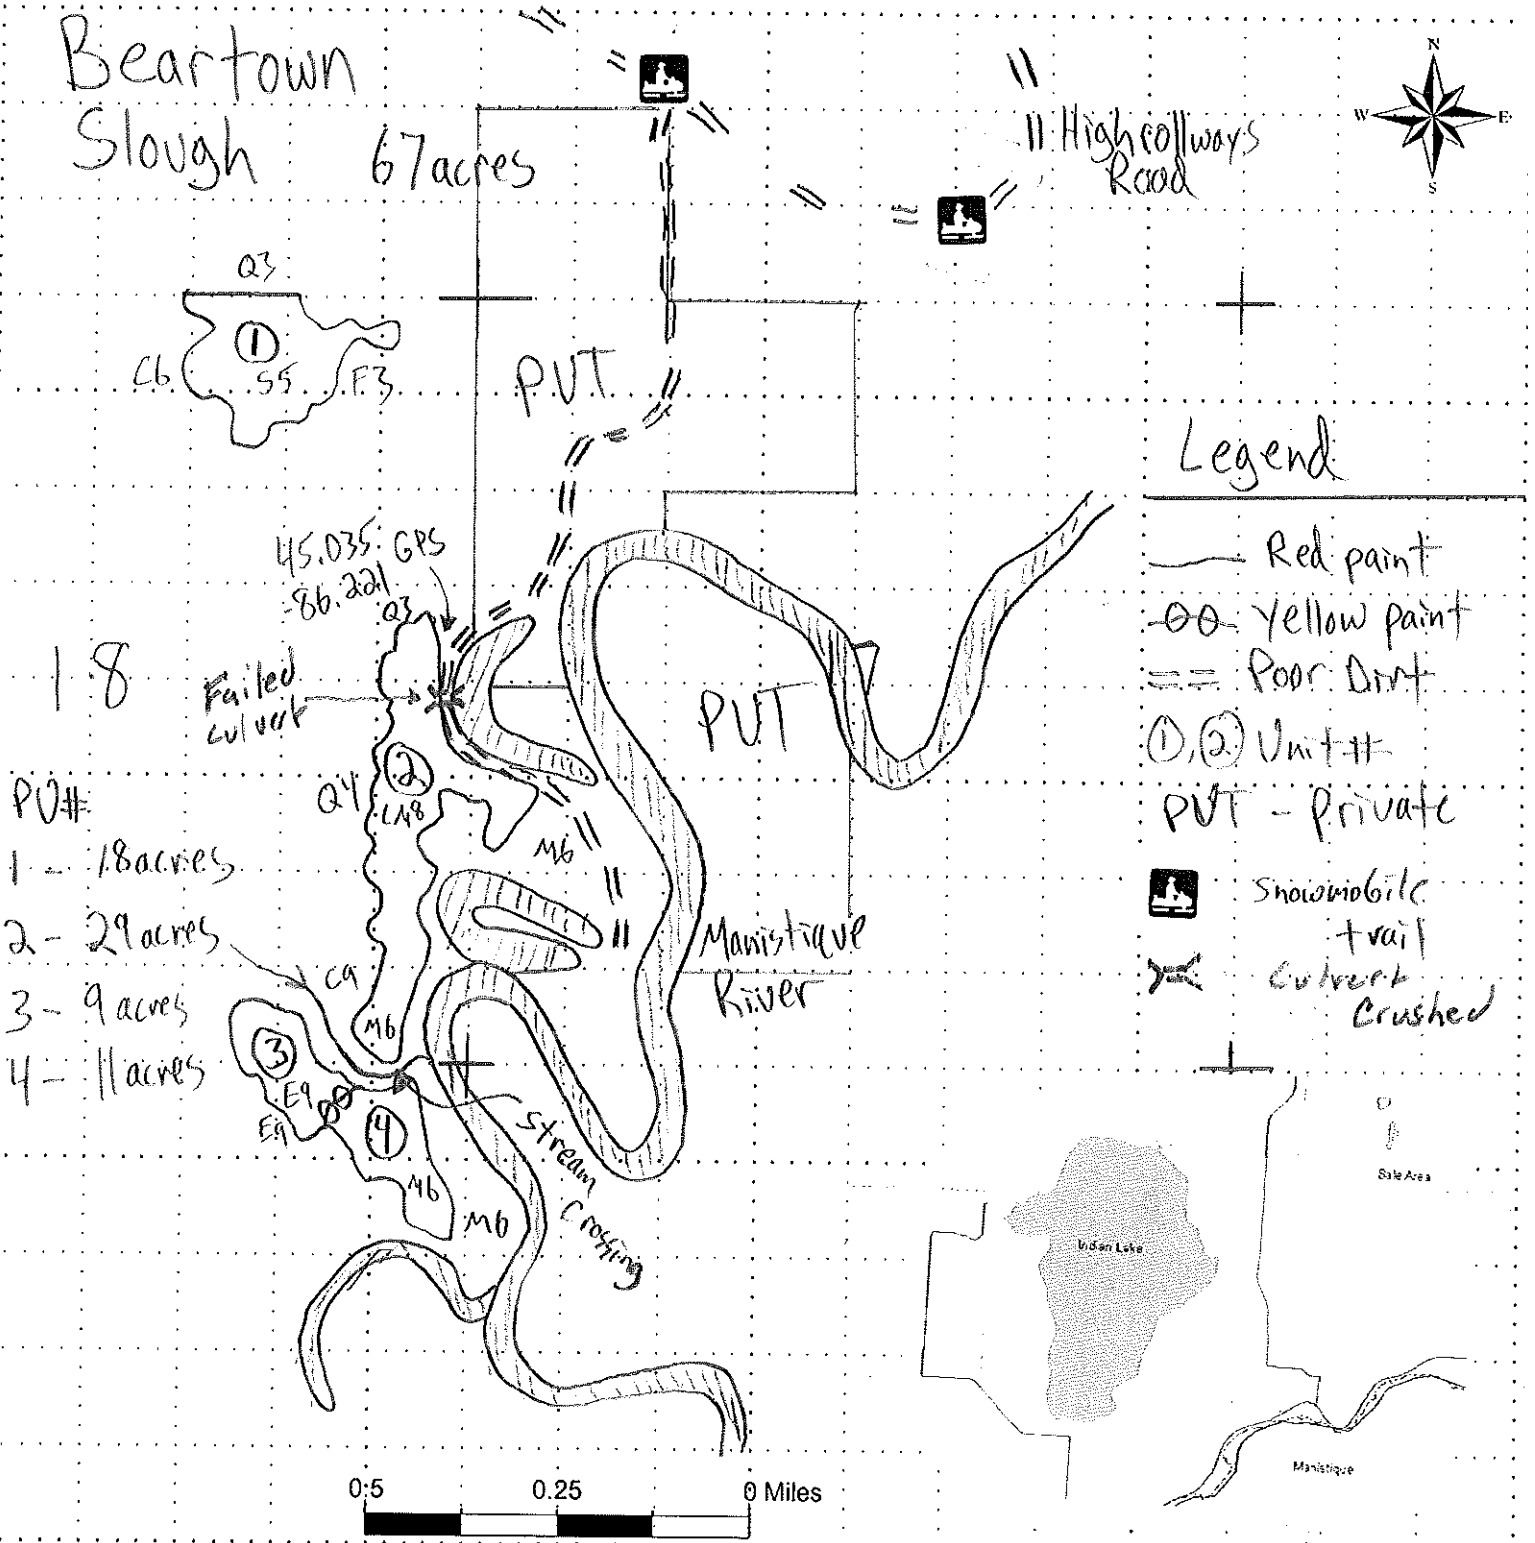 Beartown
Slough
67 acres
N
W
E
S
High rollways
Road
Q3
1
C6
S5
F3
PVT
Legend
Red paint
Yellow paint
Poor Dirt
①,② Unit #
PVT - Private
Snowmobile
trail
Culvert
Crushed
45.035 GPS
-86.221
Q3
18
Failed
culvert
2
Q4
M6
PVT
PU#
1 - 18 acres
2 - 29 acres
3 - 9 acres
4 - 11 acres
C9
M6
Manistique
River
3
E9
E9
4
M6
M6
Stream
Crossing
Sale Area
Indian Lake
Manistique
0.5
0.25
0 Miles